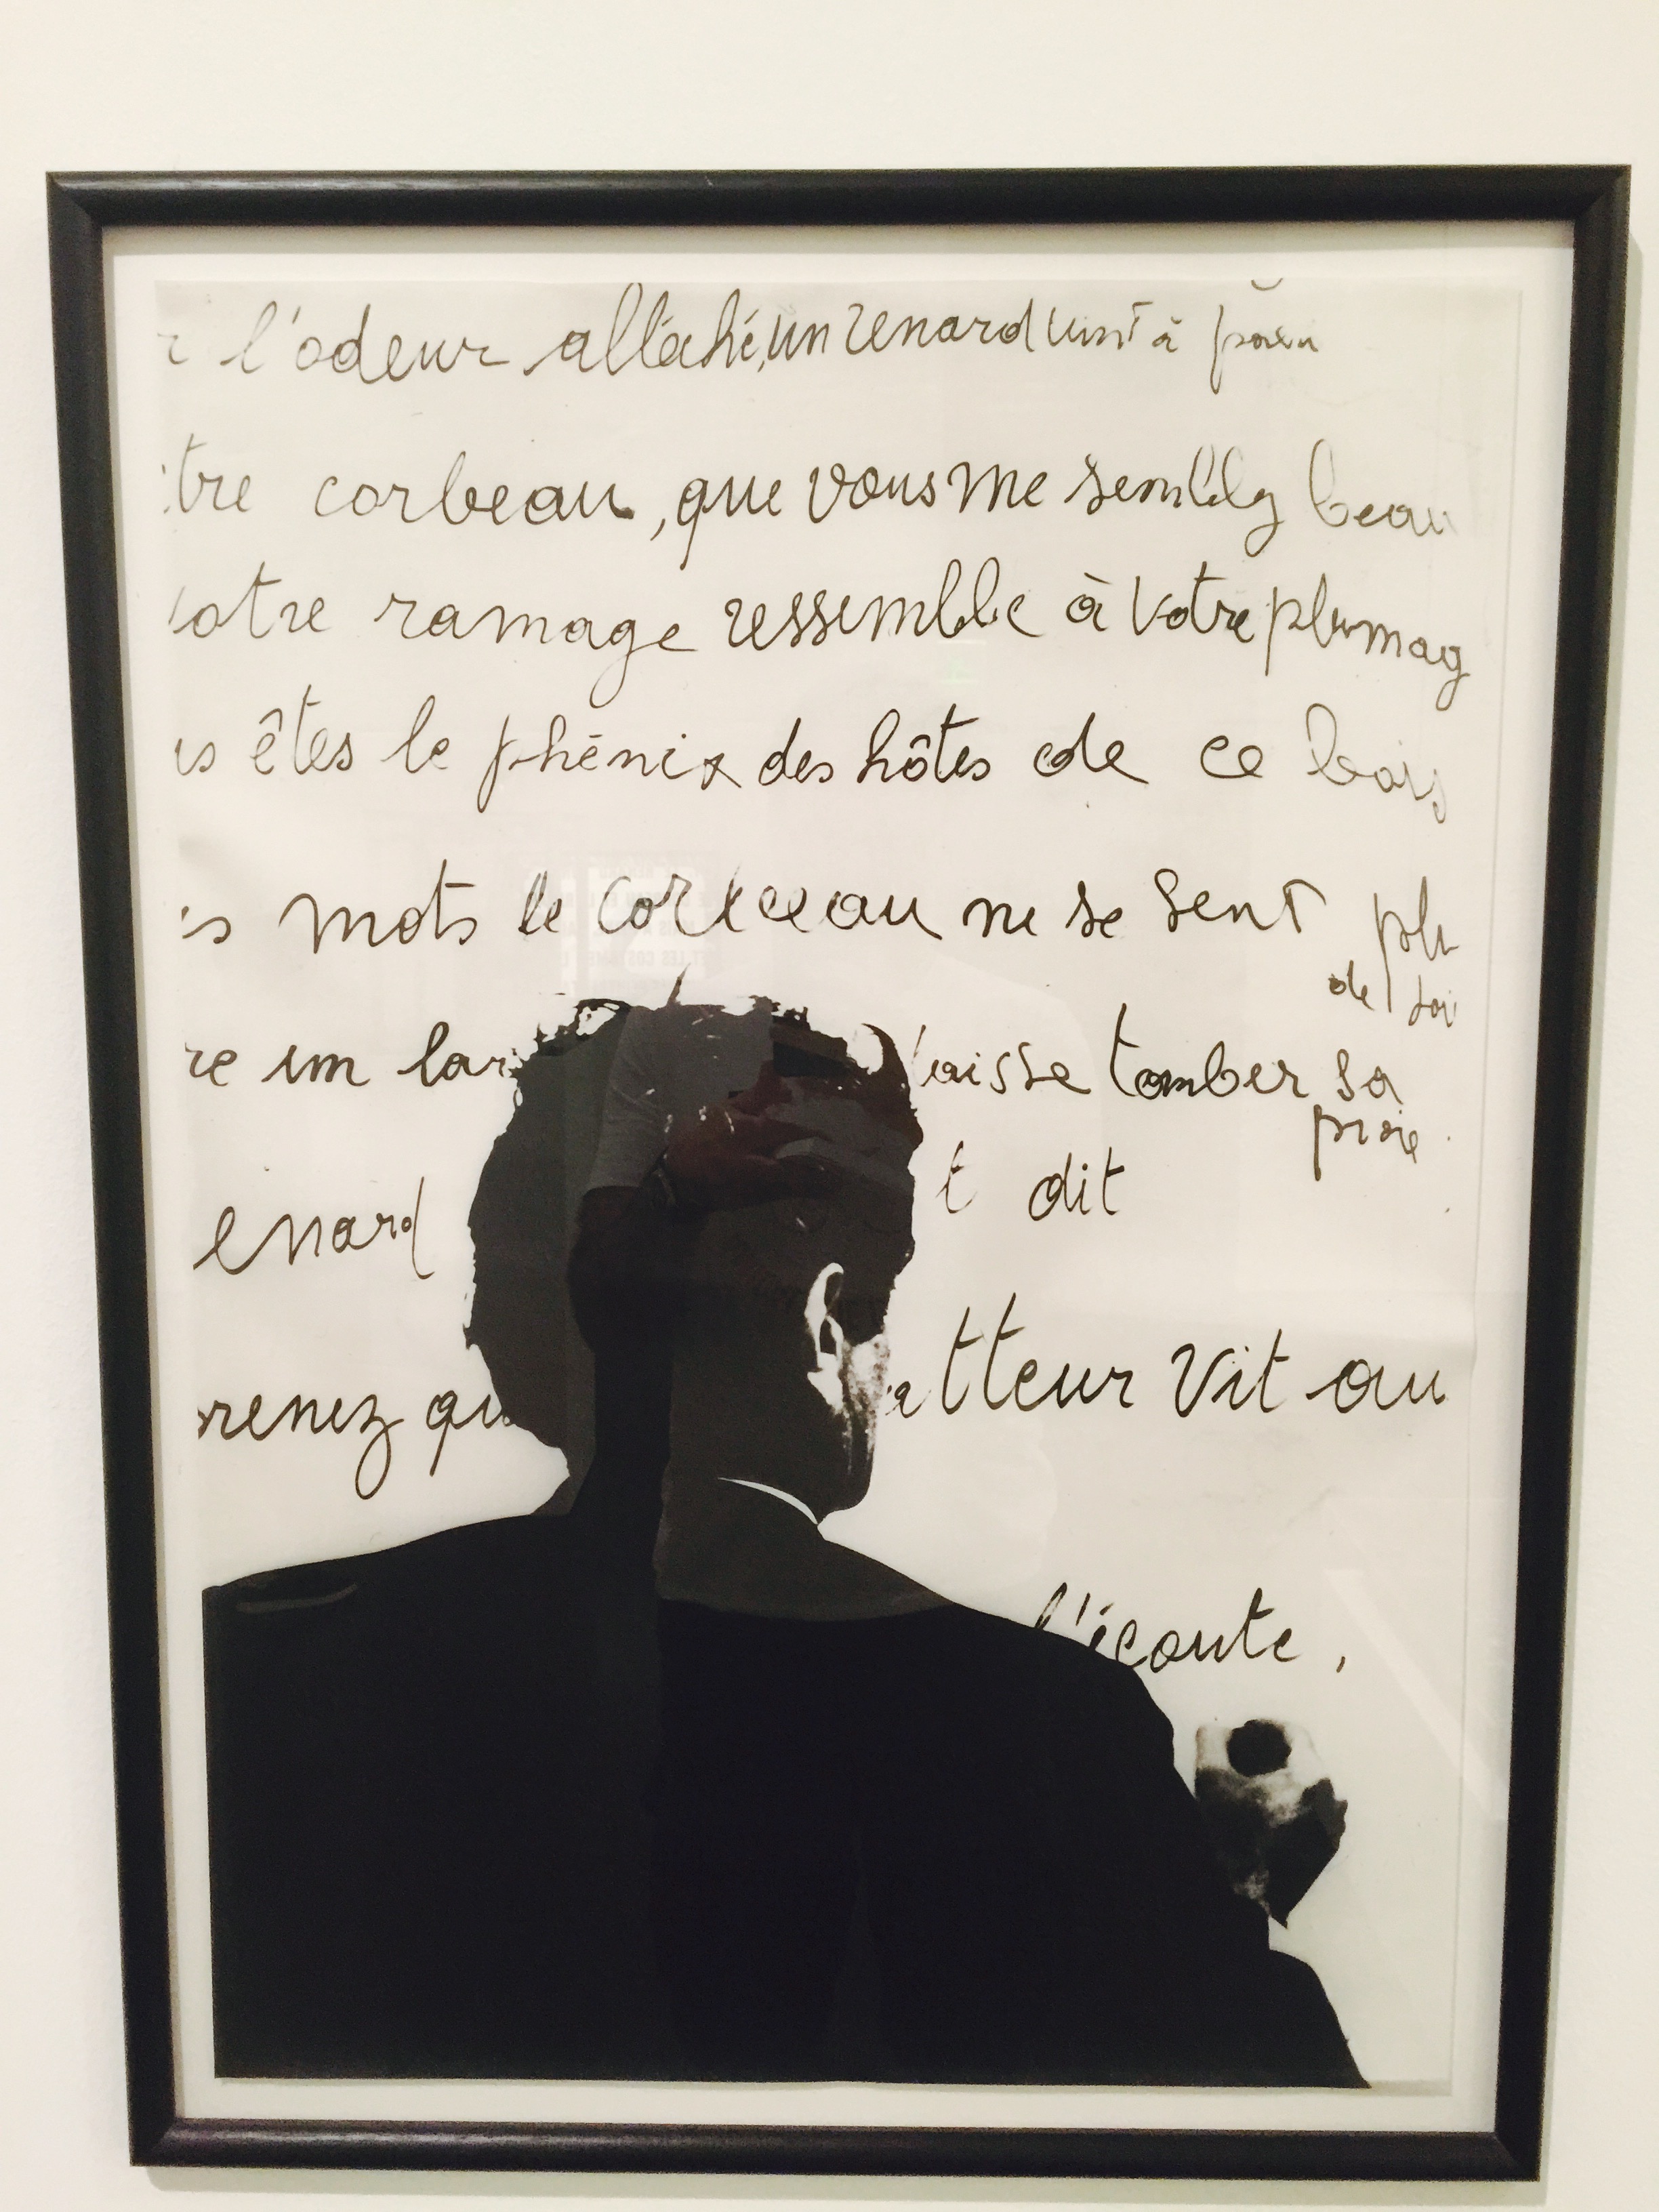 r l'odeur alléché, un renard vint à
tre corbeau, que vous me semblez beau
votre ramage ressemble à votre plumag
us êtes le phénix des hôtes de ce bois
s mots le corbeau ne se sent plu
de soi
re un lar laisse tomber sa
proie
enard t dit
renez qu atteur vit au
l'écoute,